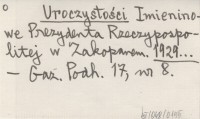 Uroczystości Imienino-
we Prezydenta Rzeczypospo-
litej w Zakopanem. 1929...
— Gaz. Podh. 17, nr 8.